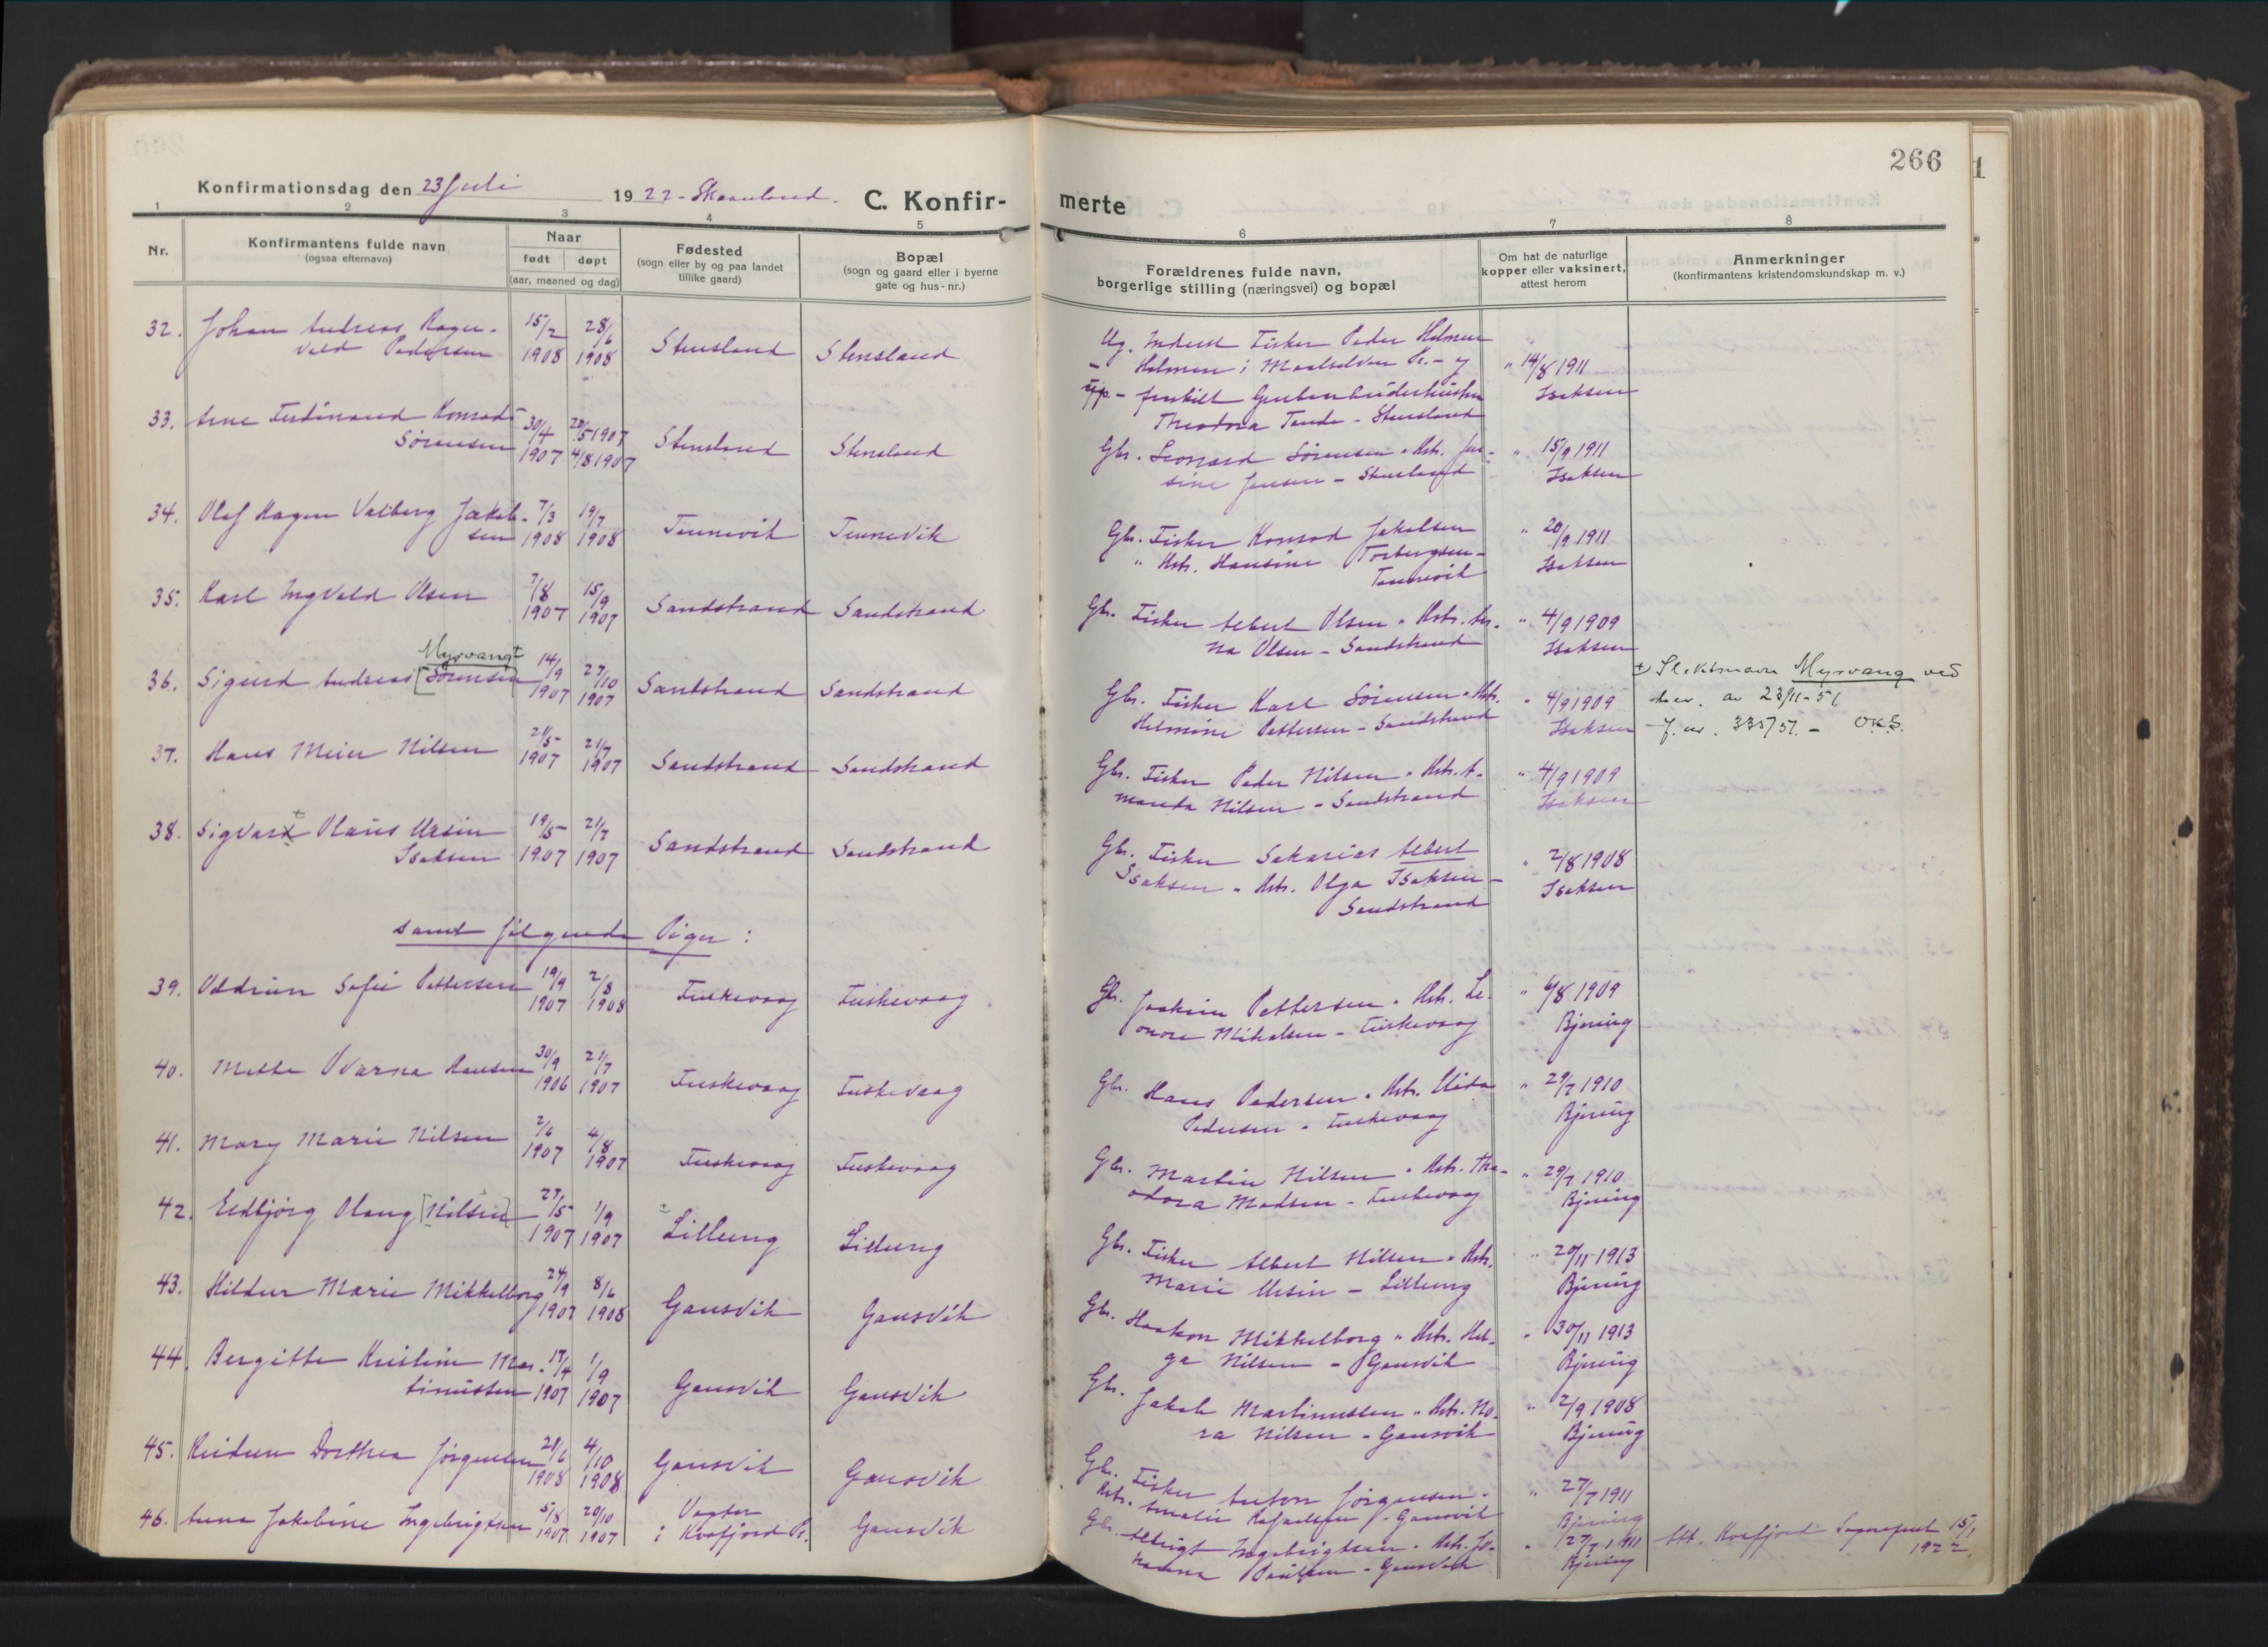 266
Konfirmationsdag den 23 Juli 1922 - Skaanland.
C. Konfir-
merte
1 2 3 4 5 6 7 8
Nr.
Konfirmantens fulde navn
(ogsaa efternavn)
Naar
født døpt
(aar, maaned og dag)
Fødested
(sogn eller by og paa landet
tillike gaard)
Bopæl
(sogn og gaard eller i byerne
gate og hus-nr.)
Forældrenes fulde navn,
borgerlige stilling (næringsvei) og bopæl
Om hat de naturlige
kopper eller vaksinert,
attest herom
Anmerkninger
(konfirmantens kristendomskundskap m. v.)
32. Johan Andreas Ragn-
vald Pedersen
15/2 1908 28/6 1908 Stensland Stensland
Ug. Inderst Fisker Peder Holmen
- Holmen i Maalselven Pr. - og
Theodora Tande - Stensland
" 14/8 1911
Isaksen
33. Arne Ferdinand Konrad
Sørensen
30/4 1907 20/5 1907 4/8 1907 Stensland Stensland
Gbr. Leonard Sørensen " Hstr. Jen-
sine Jensen - Stensland
" 15/9 1911
Isaksen
34. Olaf Hagen Valberg Jakob-
sen
7/3 1908 19/7 1908 Tennevik Tennevik
Gbr. Fisker Konrad Jakobsen
" Hstr. Hansine Torbergsen -
Tennevik
" 20/9 1911
Isaksen
35. Karl Ingvald Olsen
7/8 1907 15/9 1907 Sandstrand Sandstrand
Gbr. Fisker Albert Olsen " Hstr. An-
na Olsen - Sandstrand
" 4/9 1909
Isaksen
Myrvang +
36. Sigurd Andreas [Sørensen]
14/9 1907 27/10 1907 Sandstrand Sandstrand
Gbr. Fisker Karl Sørensen " Hstr.
Helmine Pettersen - Sandstrand
" 4/9 1909
Isaksen
+) Slektsnavn Myrvang ved
av 23/11-51
J. nr. 335/51. - O.K.S.
37. Hans Meier Nilsen
21/5 1907 21/7 1907 Sandstrand Sandstrand
Gbr. Fisker Peder Nilsen " Hstr. A-
manda Nilsen - Sandstrand
" 4/9 1909
Isaksen
38. Sigvart Olaus Ursin
Isaksen
19/5 1907 21/7 1907 Sandstrand Sandstrand
Gbr. Fisker Sakarias Albert
Isaksen " Hstr. Olga Isaksen -
Sandstrand
" 2/8 1908
Isaksen
samt følgende Piger:
39. Oddrun Sofie Pettersen
19/9 1907 2/8 1908 Fuskevaag Fuskevaag
Gbr. Joakim Pettersen " Hstr. Le-
onore Mikalsen - Fuskevaag
" 6/8 1909
Bjering
40. Mette Ovarna Hansen
30/9 1906 21/7 1907 Fuskevaag Fuskevaag
Gbr. Hans Pedersen " Hstr.
Pedersen - Fuskevaag
" 29/7 1910
Bjering
41. Mary Marie Nilsen
2/6 1907 4/8 1907 Fuskevaag Fuskevaag
Gbr. Martin Nilsen " Hstr. The-
odora Madsen - Fuskevaag
" 29/7 1910
Bjering
42. Eldbjørg Olaug [Nilsen]
27/5 1907 1/9 1907 Lilleung Lilleung
Gbr. Fisker Albert Nilsen " Hstr.
Marie Ursin - Lilleung
" 20/11 1913
Bjering
43. Hildur Marie Mikkelborg
24/9 1907 8/6 1908 Gausvik Gausvik
Gbr. Haakon Mikkelborg " Hstr. Hel-
ga Nilsen - Gausvik
" 30/11 1913
Bjering
44. Bergitte Kristine Mar-
tinussen
17/4 1907 1/9 1907 Gausvik Gausvik
Gbr. Jakob Martinussen " Hstr. No-
ra Nilsen - Gausvik
" 2/9 1908
Bjering
45. Reidun Dorthea Jørgensen
21/6 1908 4/10 1908 Gausvik Gausvik
Gbr. Fisker Anton Jørgensen "
Hstr. Amalie Rafaelsen - Gausvik
" 27/7 1911
Bjering
46. Anna Jakobine Ingebrigtsen
5/8 1907 20/10 1907
i Kvæfjord Pr. Gausvik
Gbr. Albrigt Ingebrigtsen " Hstr. Jo-
hanna Paulsen - Gausvik
" 27/7 1911
Bjering
Att. Kvæfjord Sogneprest 15/1
1922.